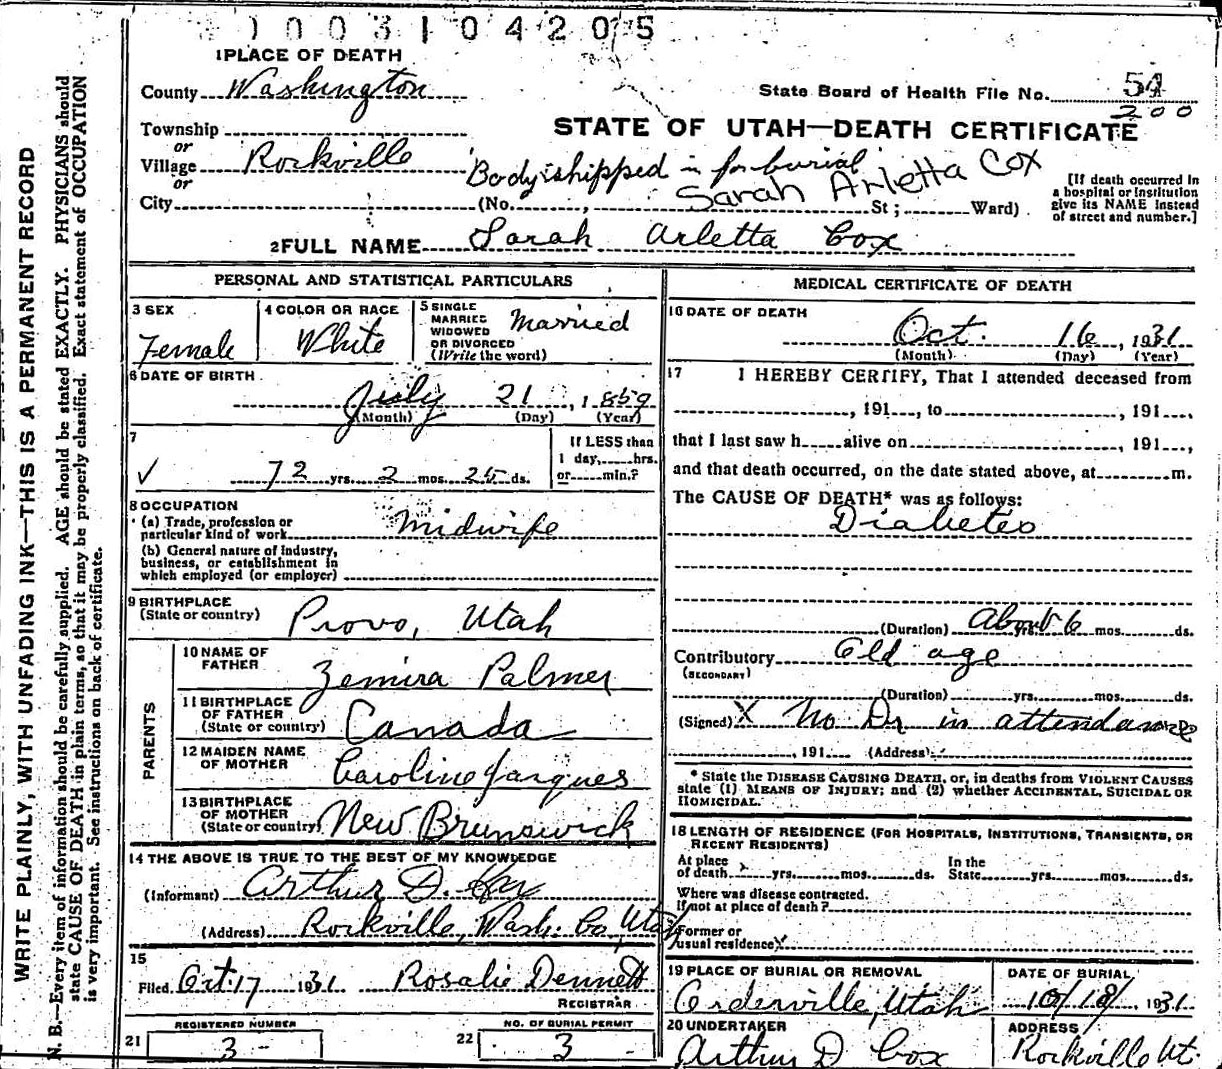 1003104205
1 PLACE OF DEATH
County Washington
State Board of Health File No. 54
200
Township
or
Village Rockville
or
City
STATE OF UTAH—DEATH CERTIFICATE
Body shipped in for burial
Sarah Arletta Cox
(No. , St; Ward)
[If death occurred in
a hospital or institution
give its NAME instead
of street and number.]
2 FULL NAME Sarah Arletta Cox
PERSONAL AND STATISTICAL PARTICULARS
3 SEX
Female
4 COLOR OR RACE
White
5 SINGLE
MARRIED
WIDOWED
OR DIVORCED
(Write the word)
Married
6 DATE OF BIRTH
July 21, 1859
(Month) (Day) (Year)
7
✓ 72 yrs. 2 mos. 25 ds.
If LESS than
1 day, hrs.
or min.?
8 OCCUPATION
(a) Trade, profession or
particular kind of work Midwife
(b) General nature of industry,
business, or establishment in
which employed (or employer)
9 BIRTHPLACE
(State or country) Provo, Utah
PARENTS
10 NAME OF
FATHER Zemira Palmer
11 BIRTHPLACE
OF FATHER
(State or country) Canada
12 MAIDEN NAME
OF MOTHER Caroline Jaques
13 BIRTHPLACE
OF MOTHER
(State or country) New Brunswick
14 THE ABOVE IS TRUE TO THE BEST OF MY KNOWLEDGE
(Informant) Arthur D. Cox
(Address) Rockville, Wash. Co, Utah
15
Filed Oct. 17 1931 Rosalie Dennett
REGISTRAR
21 REGISTERED NUMBER
3
22 NO. OF BURIAL PERMIT
3
MEDICAL CERTIFICATE OF DEATH
16 DATE OF DEATH
Oct. 16, 1931
(Month) (Day) (Year)
17 I HEREBY CERTIFY, That I attended deceased from
, 191 , to , 191 ,
that I last saw h alive on , 191 ,
and that death occurred, on the date stated above, at m.
The CAUSE OF DEATH* was as follows:
Diabetes
(Duration) About 6 yrs. mos. ds.
Contributory Old age
(SECONDARY)
(Duration) yrs. mos. ds.
(Signed) X No Dr in attendance
, 191 (Address)
* State the DISEASE CAUSING DEATH, or, in deaths from VIOLENT CAUSES
state (1) MEANS OF INJURY; and (2) whether ACCIDENTAL, SUICIDAL OR
HOMICIDAL.
18 LENGTH OF RESIDENCE (FOR HOSPITALS, INSTITUTIONS, TRANSIENTS, OR
RECENT RESIDENTS)
At place
of death yrs. mos. ds.
In the
State yrs. mos. ds.
Where was disease contracted.
If not at place of death?
Former or
usual residence
19 PLACE OF BURIAL OR REMOVAL
Orderville, Utah
DATE OF BURIAL
10/18/ 1931
20 UNDERTAKER
Arthur D Cox
ADDRESS
Rockville Ut.
WRITE PLAINLY, WITH UNFADING INK—THIS IS A PERMANENT RECORD
N. B.—Every item of information should be carefully supplied. AGE should be stated EXACTLY. PHYSICIANS should
state CAUSE OF DEATH in plain terms, so that it may be properly classified. Exact statement of OCCUPATION
is very important. See instructions on back of certificate.